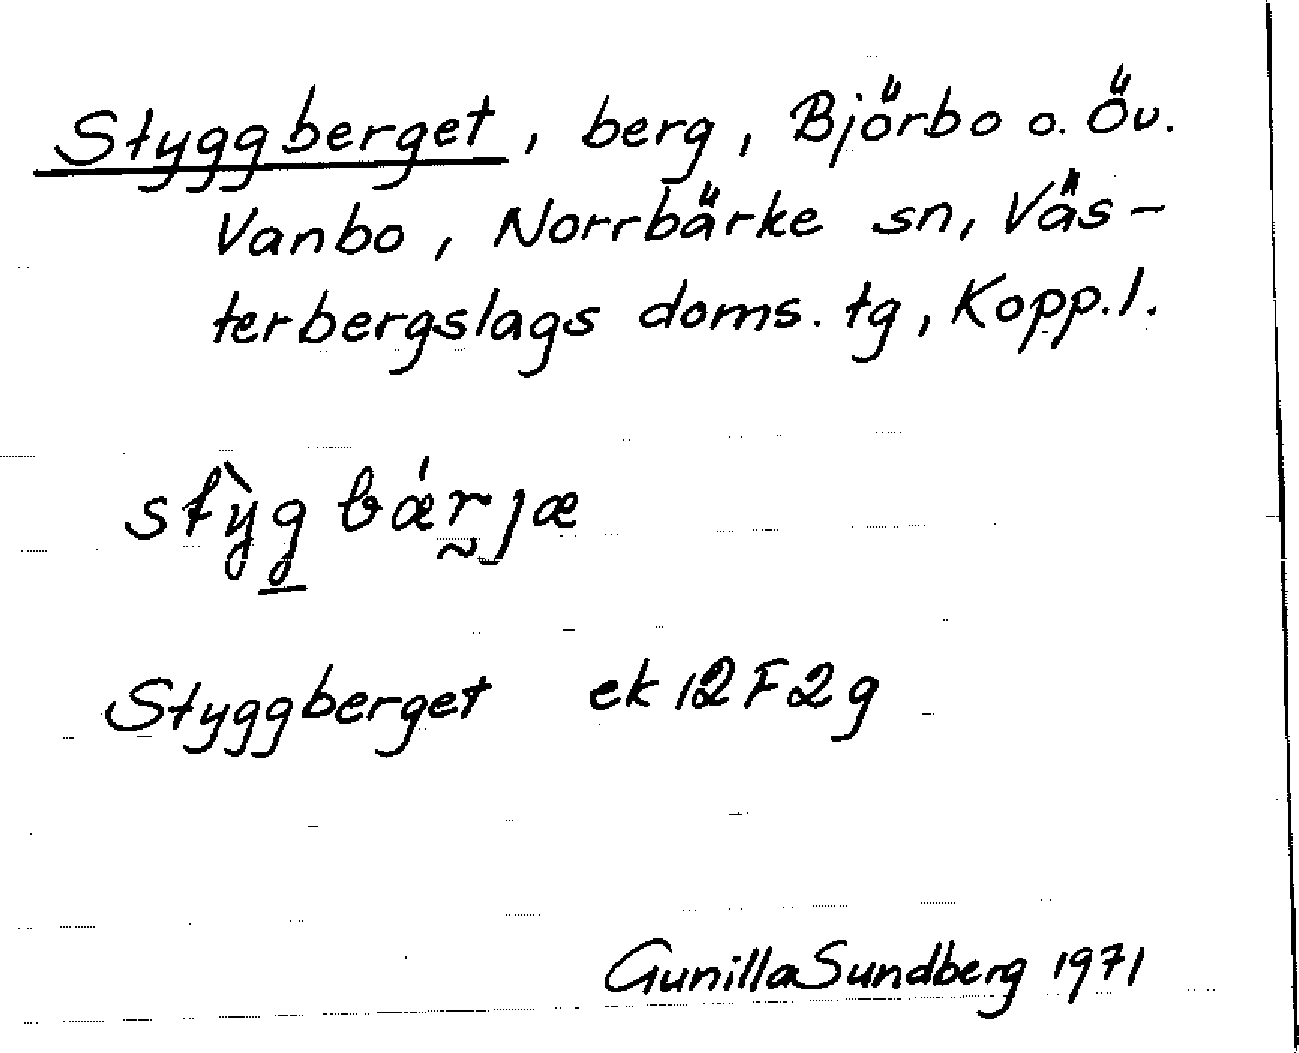 Styggberget, berg, Björbo o. Öv.
Vanbo, Norrbärke sn, Väs-
terbergslags doms. tg, Kopp. l.
stỳg bǽr̰jæ
Styggberget ek 12F2g
Gunilla Sundberg 1971